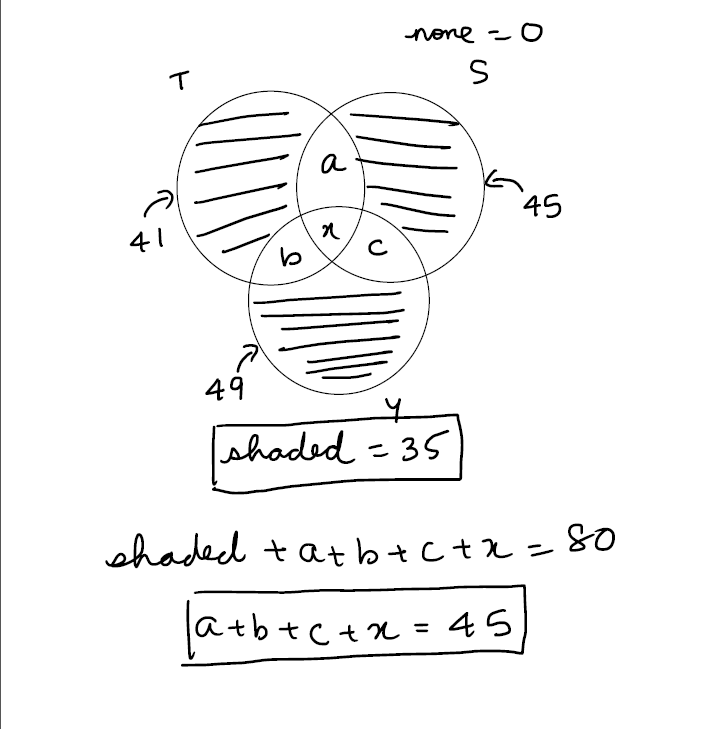 none = 0
T
S
a
45
41
x
b
c
49
Y
shaded = 35
shaded + a + b + c + x = 80
a + b + c + x = 45